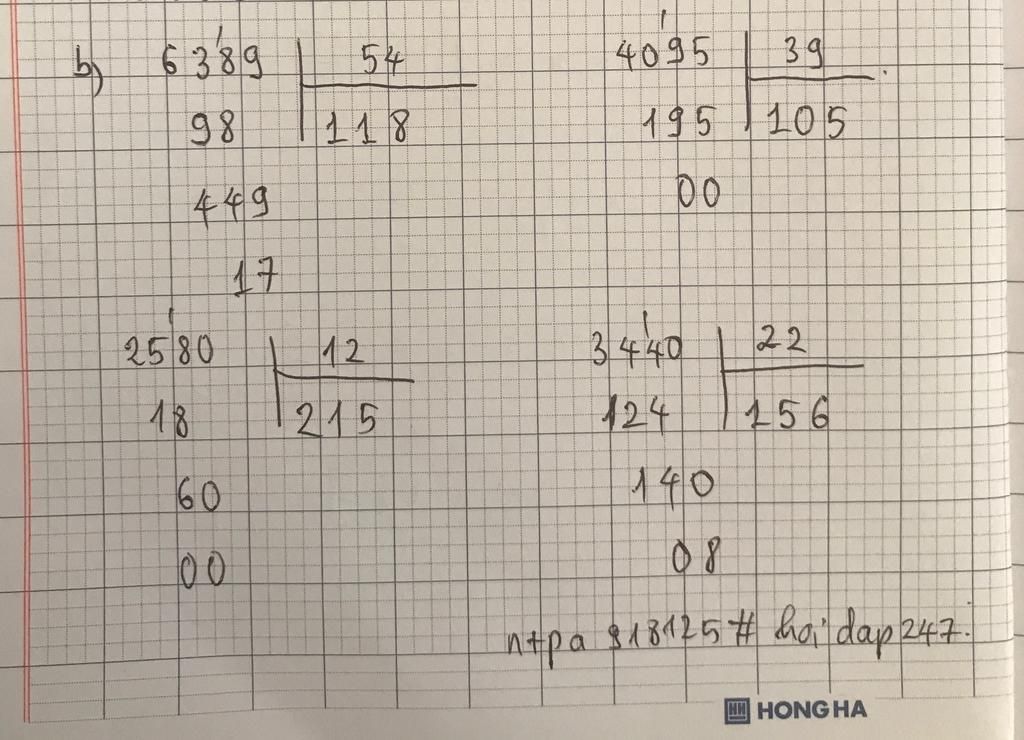 b) 6389 54 4095 39
98 118 195 105
449 00
17
2580 12 3440 22
18 215 124 156
60 140
00 08
ntpa 918125# hoidap247.
HH HONG HA